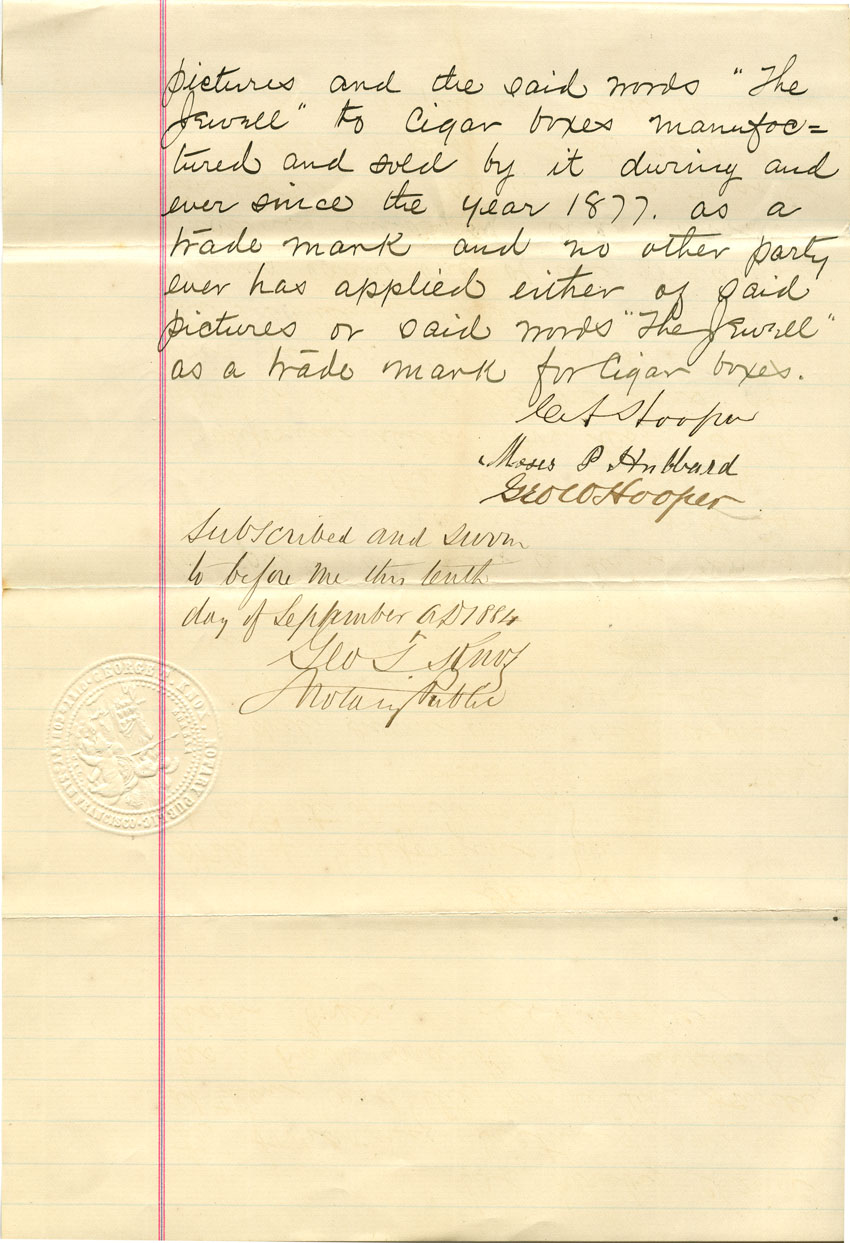 pictures and the said words "The
Jewell" to Cigar boxes manufac=
tured and sold by it during and
ever since the year 1877. as a
trade mark and no other party
ever has applied either of said
pictures or said words "The Jewell"
as a trade mark for Cigar boxes.
C A Hooper
Moses P Hubbard
Geo W Hooper
Subscribed and sworn
to before me this tenth
day of September A D 1884
Geo T Knox
Notary Public
GEORGE T. KNOX
NOTARY PUBLIC
SAN FRANCISCO